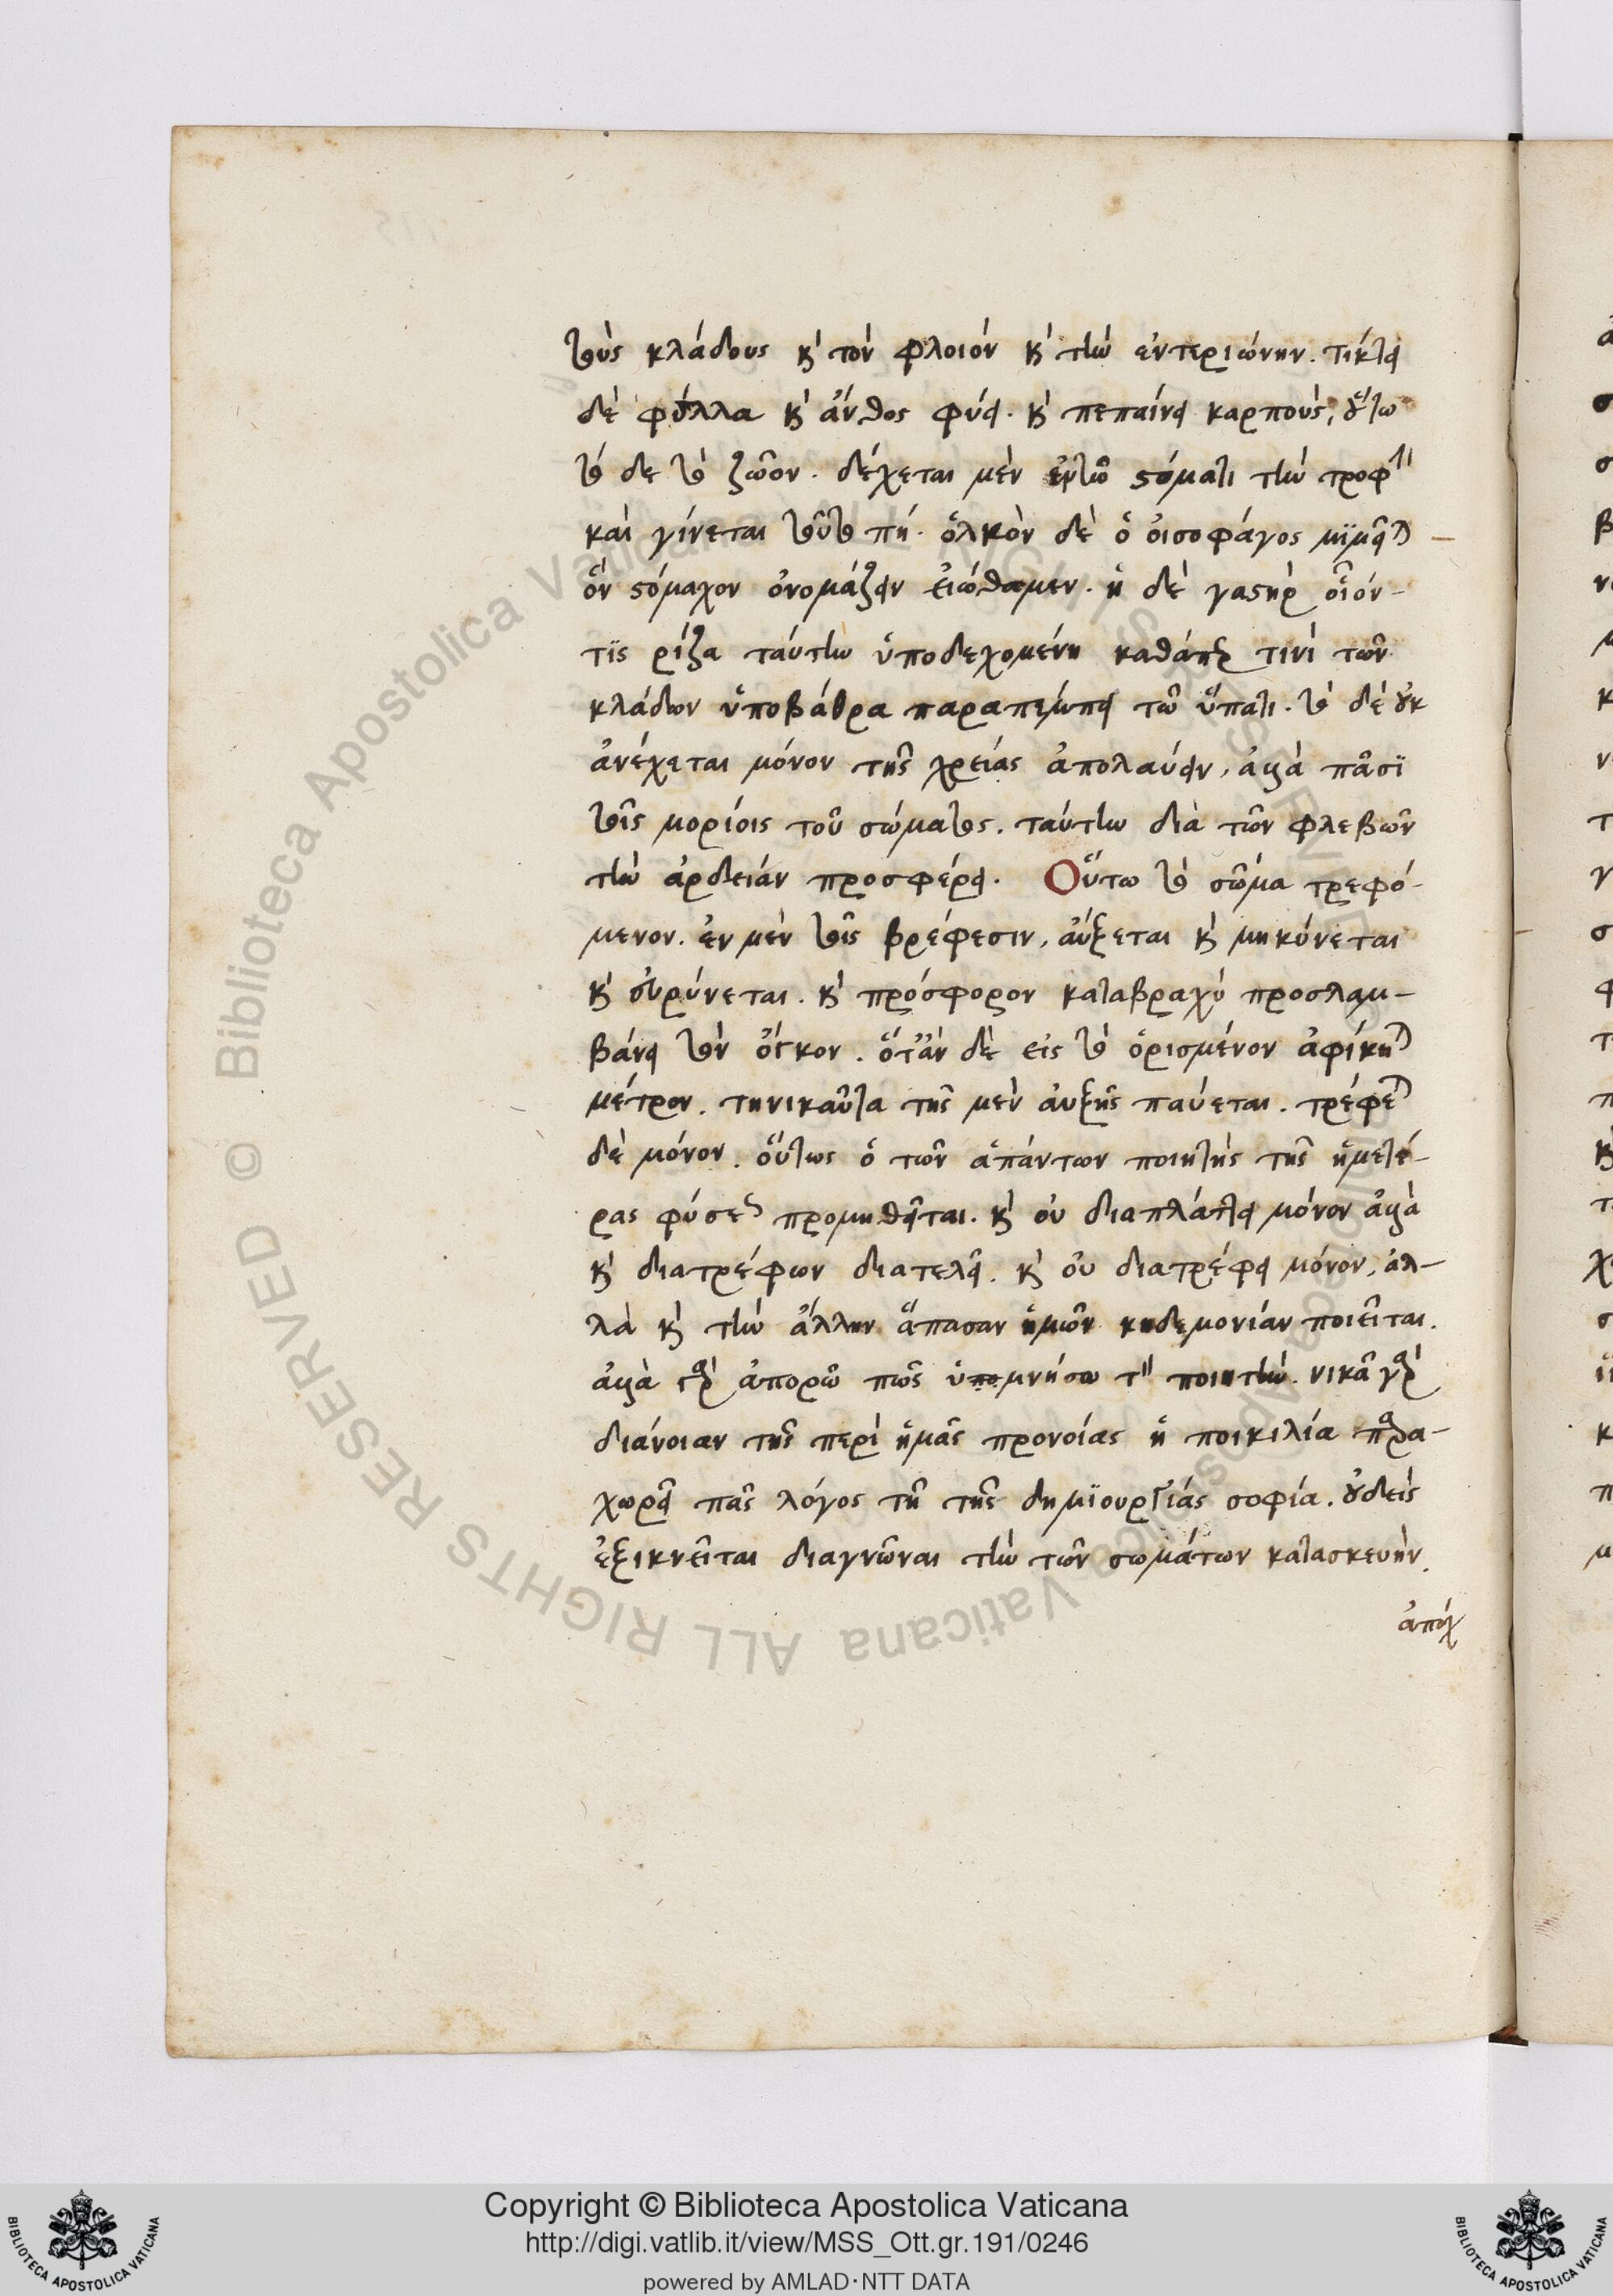 τοὺς κλάδους κ̀ τὸν φλοιόν κ̀ τὴν ἐντεριώνην. τίκτει
δὲ φύλλα κ̀ ἄνθος φύει. κ̀ πεπαίνει καρπούς, οὕτω
τό δε τὸ ζῶον. δέχεται μὲν ἐν τῶ στόματι τὴν τροφὴ
καὶ γίνεται τοῦτο πή. ὁλκὸν δὲ ὁ οἰσοφάγος μϊμεῖται
ὅν στόμαχον ὀνομάζειν εἰώθαμεν. ἡ δὲ γαστὴρ οἷόν-
τϊς ρίζα ταύτην ὑποδεχομένη καθάπερ τινὶ τῶν
κλάδων ὑποβάθρα παραπέμπει τῶ ὕπατι. τὸ δὲ οὐκ
ἀνέχεται μόνον τῆς χρείας ἀπολαύειν, ἀλλὰ πᾶσϊ
τοῖς μορίοις τοῦ σώματος. ταύτην διὰ τῶν φλεβῶν
τὴν ἀρδειάν προσφέρει. Οὕτω τὸ σῶμα τρεφό-
μενον. ἐν μὲν τοῖς βρέφεσιν, αὔξεται κ̀ μηκύνεται
κ̀ εὐρύνεται. κ̀ πρόσφορον καταβραχὺ προσλαμ-
βάνει τὸν ὄγκον. ὅτἂν δὲ εἰς τὸ ὁρισμένον ἀφίκηται
μέτρον. τηνικαῦτα τῆς μὲν αὐξῆς παύεται. τρέφεται
δὲ μόνον. οὕτως ὁ τῶν ἁπάντων ποιητὴς τῆς ἡμετέ-
ρας φύσεως προμηθεῖται. κ̀ οὐ διαπλάττει μόνον ἀλλὰ
κ̀ διατρέφων διατελεῖ. κ̀ οὐ διατρέφει μόνον, ἀλ-
λὰ κ̀ τὴν ἄλλην ἅπασαν ἡμῶν κηδεμονίαν ποιεῖται.
ἀλλὰ γὰρ ἀπορῶ πῶς ὑπομνήσω τὴ ποιητὴν. νικᾶ γὰρ
διάνοιαν τῆς περὶ ἡμᾶς προνοίας ἡ ποικιλία παρα-
χωρεῖ πᾶς λόγος τῆ τῆς δημϊουργίας σοφία. οὐδεὶς
ἐξικνεῖται διαγνῶναι τὴν τῶν σωμάτων κατασκευὴν.
ἀπόχ
Copyright © Biblioteca Apostolica Vaticana
http://digi.vatlib.it/view/MSS_Ott.gr.191/0246
powered by AMLAD·NTT DATA
BIBLIOTECA APOSTOLICA VATICANA
BIBLIOTECA APOSTOLICA VATICANA
© Biblioteca Apostolica Vaticana ALL RIGHTS RESERVED